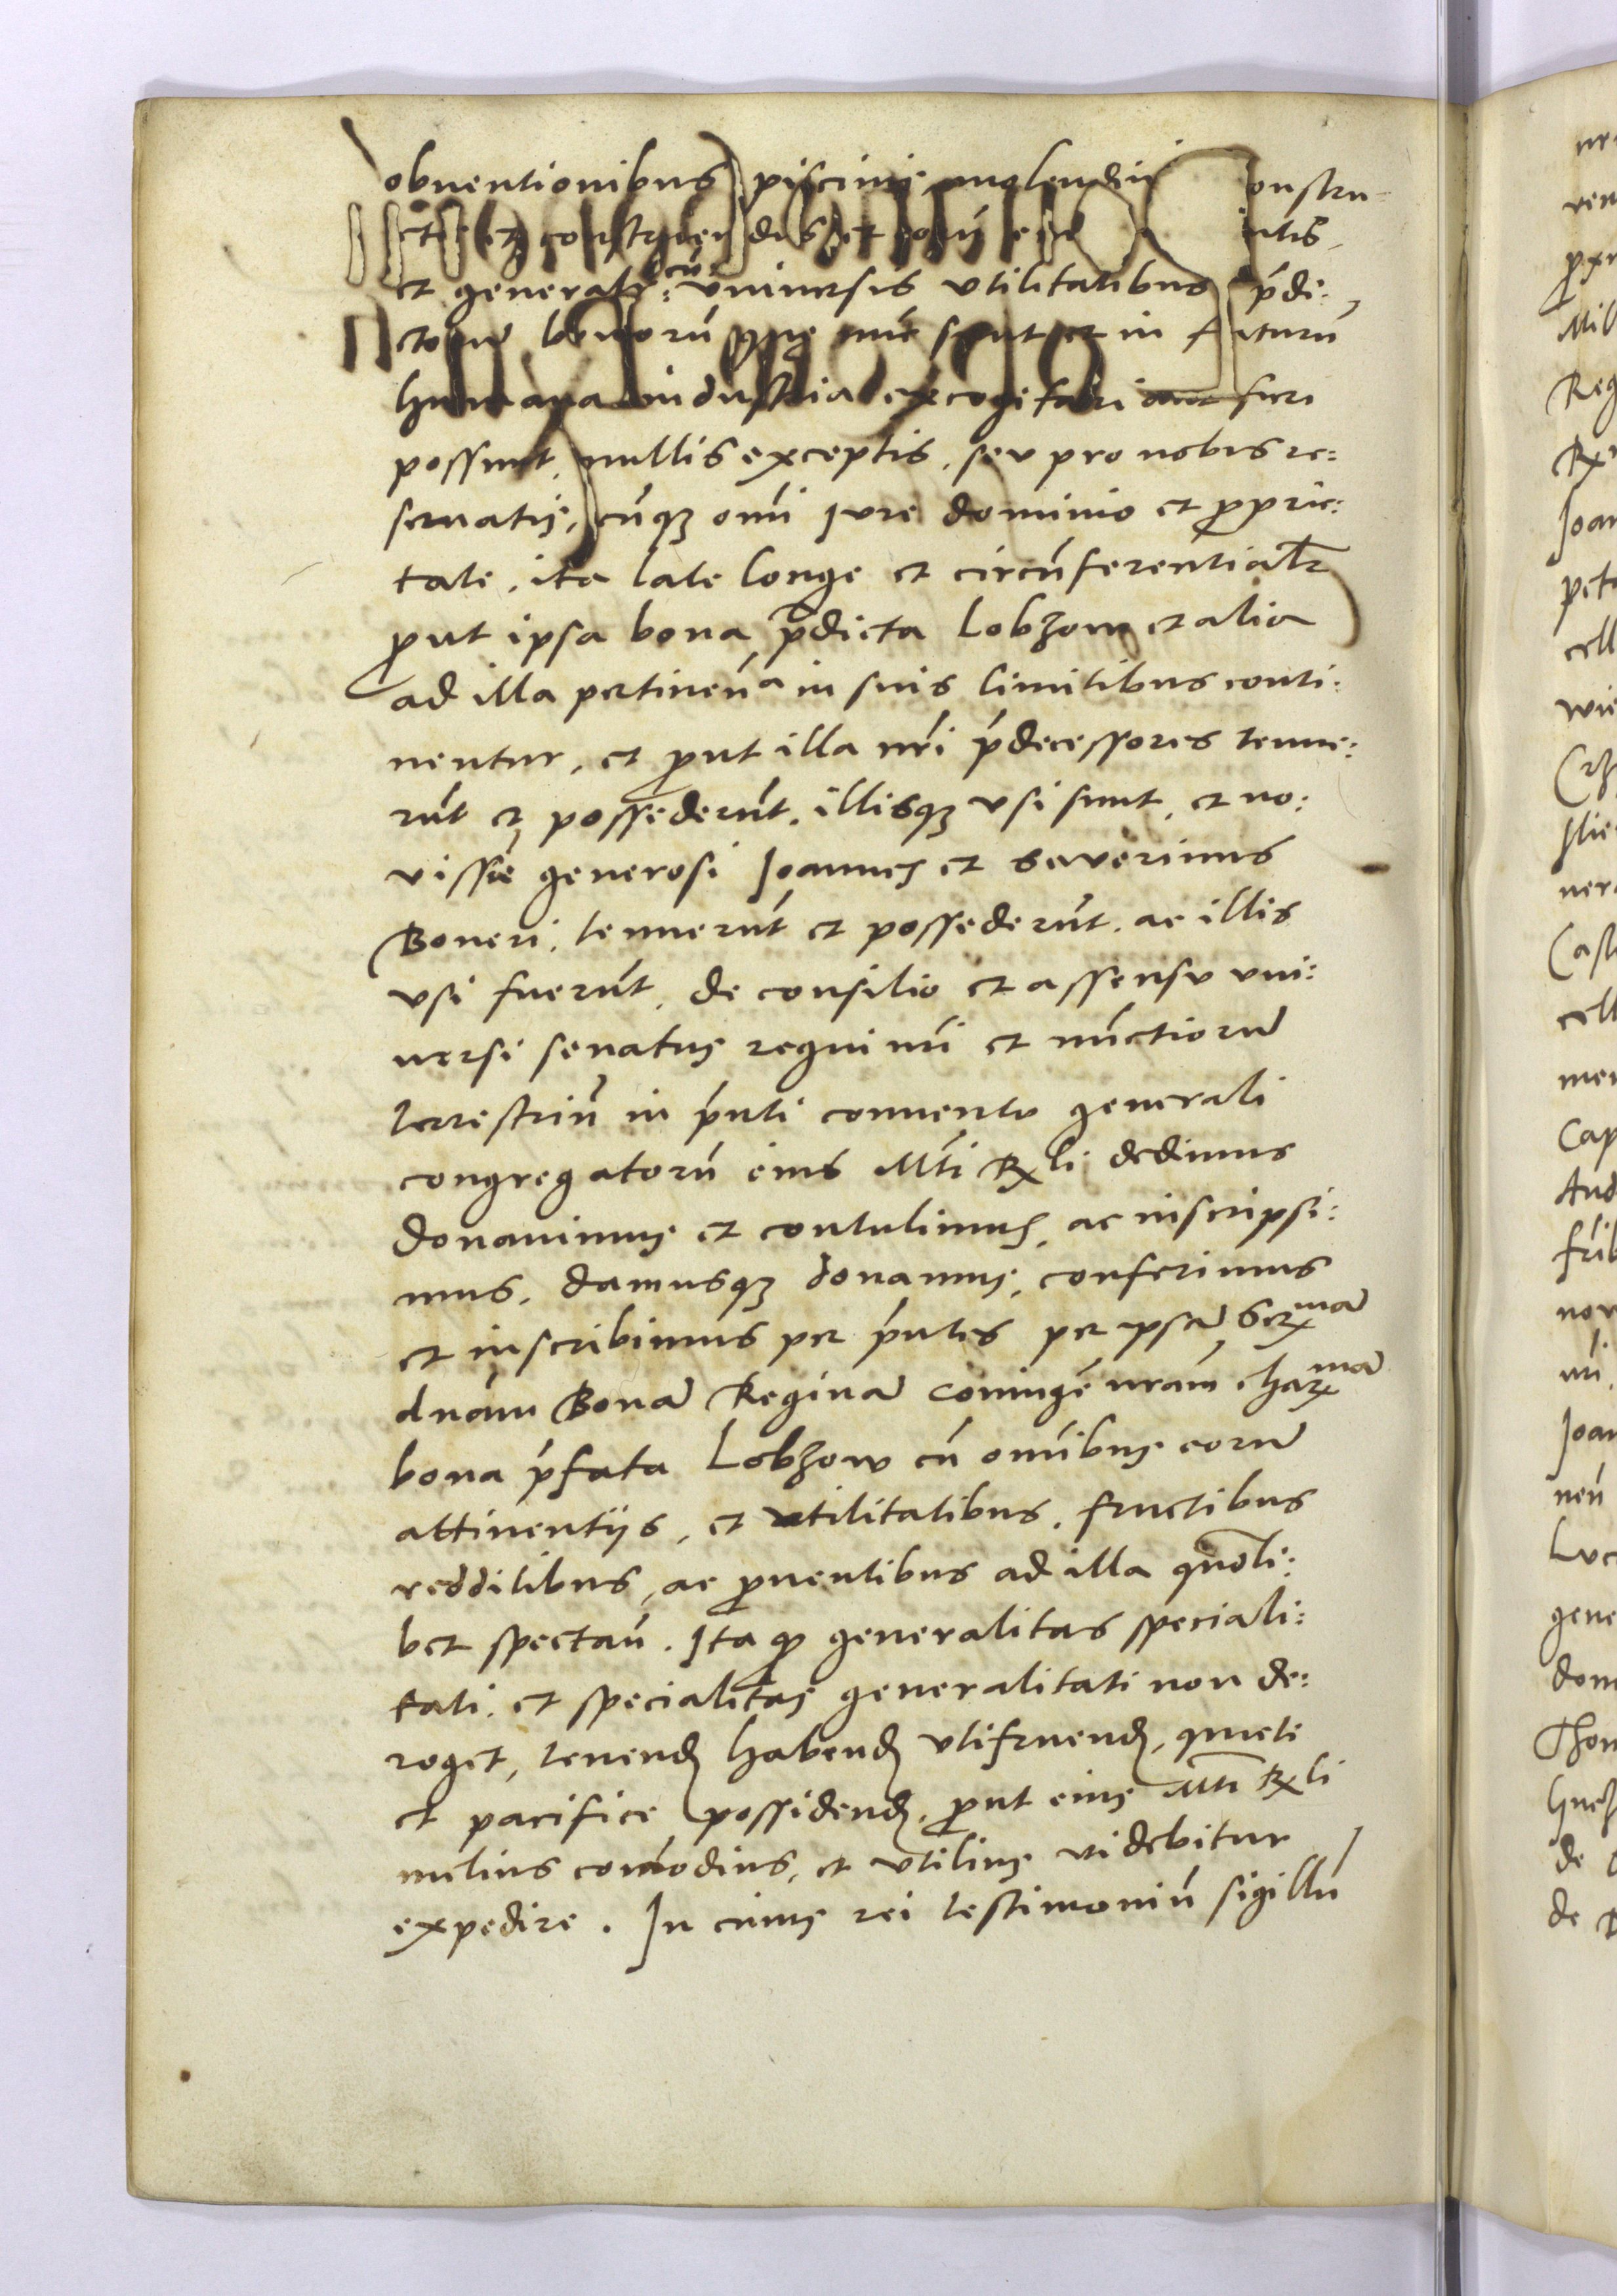 obuentionibus, piscinis, molendin onstru-
ctis et construendis et
et generalr: cū vniuersis vtilitatibus p̄di:
ctorum bonorū que nūc sunt et in futurū
humana industria excogitari aut fieri
possunt, nullis exceptis, seu pro nobis re:
seruatis, cūq3 omī iure dominio et proprie:
tate, ita late longe et circūferentialr
prout ipsa bona p̄dicta Lobzow et alia
ad illa pertineña in suis limitibus conti:
nentur, et prout illa nr̄i p̄decessores tenue:
rūt et possederūt, illisq3 vsi sunt, et no:
vissie generosi Joannes et Severinus
Boneri, tenuerūt et possederūt, ac illis
vsi fuerūt, de consilio et assensu vni:
uersi senatus regni nr̄i et nūctiorum
terrestriū in p̄nti conuentu generali
congregatorū eius Mti Rli dedimus
donauimus et contulimus, ac inscripsi:
mus, damusq3 donamus, conferimus
et inscribimus per p̄ntes per ipsam Serma
dnām Bonam Reginam coniugē nrām charma
bona p̄fata Lobzow cū omībus eorum
attinentijs, et vtilitatibus, fructibus
redditibus, ac prouentibus ad illa quoli:
bet spectañ. Ita q generalitas speciali:
tati, et specialitas generalitati non de:
roget, tenend habend vtifruend, quiete
et pacifice possidend, prout eius Mti Rli
melius com̄odius, et vtilius videbitur
expedire. In cuius rei testimoniū sigillū